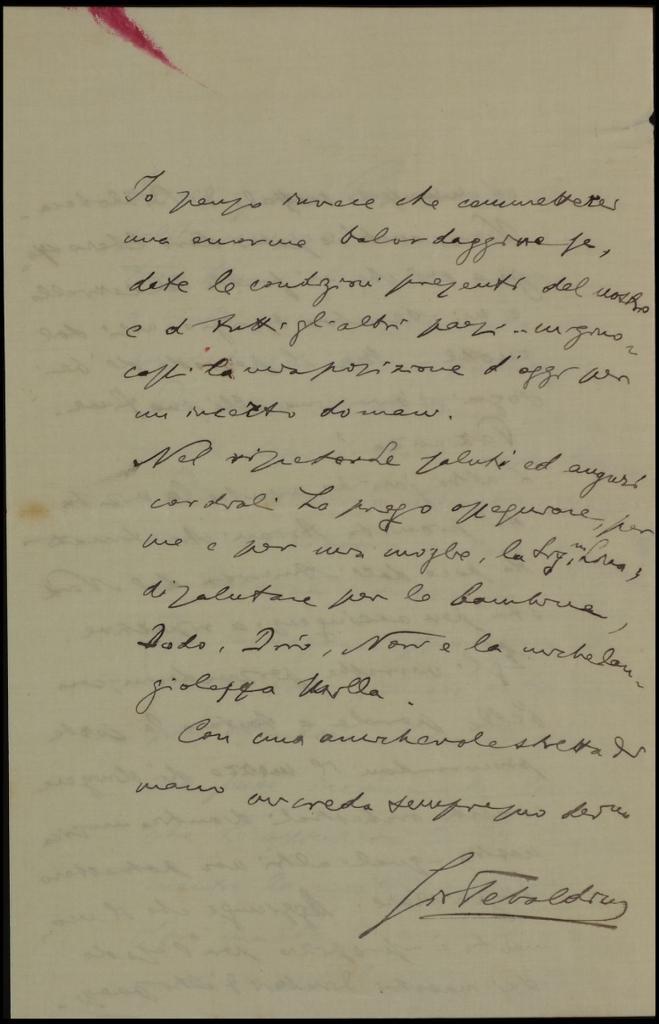 Io penso invece che commetterei
una enorme balordaggine se,
date le condizioni presenti del nostro
e d tutti gli altri paesi
la mia posizione d'oggi per
un incerto domani.
Nel ripeterLe saluti ed auguri
cordiali La prego ossequiare, per
me e per mia moglie, la Sig.ra
di salutare per le bambine,
Dodo, Nori e la michelan-
giolesca
Con una amichevole stretta di
mano mi creda sempre suo dev.mo
Gio Tebaldini